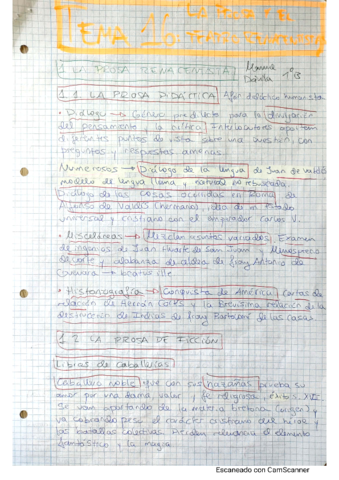 LA PROSA Y EL
TEMA 16 TEATRO RENACENTISTA
1 LA PROSA RENACENTISTA
1º B
1.1 LA PROSA DIDÁCTICA Afán didáctico humanista
· Diálogo → Género predilecto para la divulgación
del pensamiento y la política. Interlocutores aportan
diferentes puntos de vista sobre una cuestión, con
preguntas y respuestas amenas.
Numerosos → Diálogo de la lengua de Juan de Valdés
modelo de lengua llana y natural no rebuscada.
Diálogo de las cosas ocurridas en Roma de
Alfonso de Valdés (hermano), idea de un Estado
universal y cristiano con el emperador Carlos V.
· Misceláneas → Mezclan asuntos variados. Examen
de ingenios de Juan Huarte de San Juan, Menosprecio
de corte y alabanza de aldea de fray Antonio de
Guevara → beatus ille
· Historiografía → Conquista de América. Cartas de
relación de Hernán Cortés y la Brevísima relación de la
destrucción de Indias de fray Bartolomé de las Casas
1.2 LA PROSA DE FICCIÓN
Libros de caballerías
Caballero noble que con sus hazañas prueba su
amor por una dama, valor y fe religiosa, éxito s. XVI.
Se van apartando de la materia bretona (origen) y
va cobrando peso el carácter cristiano del héroe y
las batallas colectivas. Pierden relevancia el elemento
fantástico y la magia.
Escaneado con CamScanner